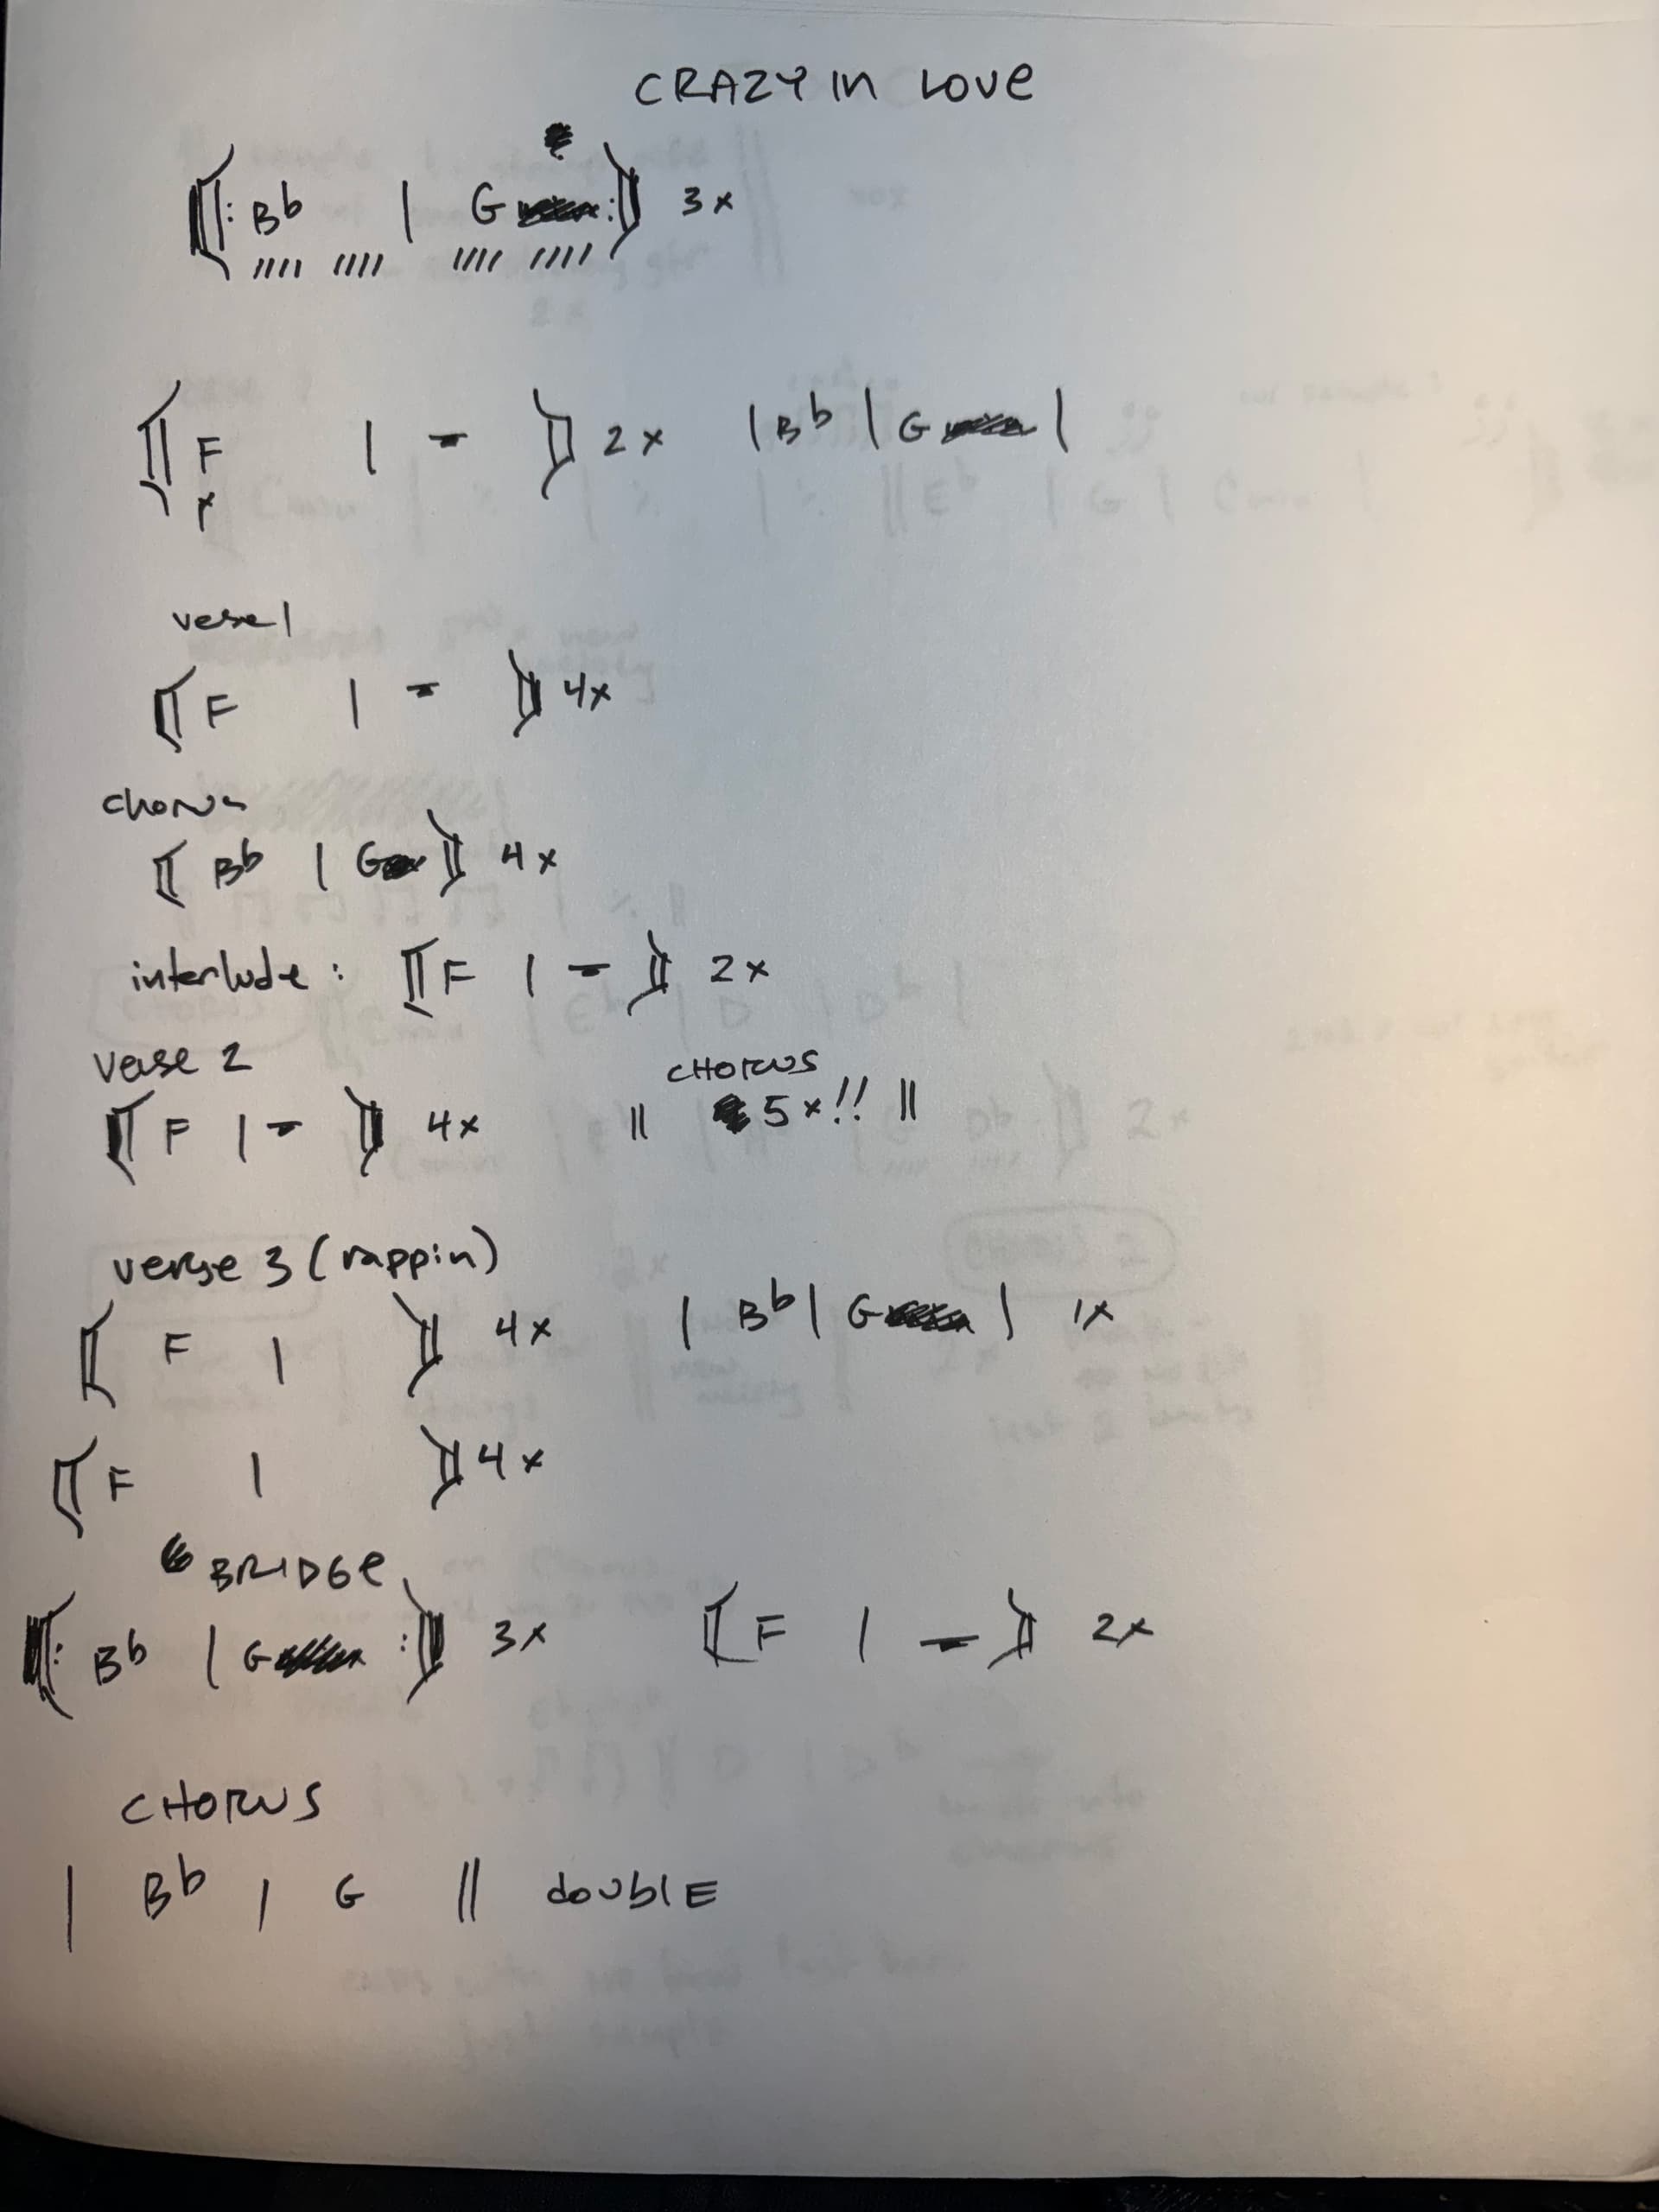 CRAZY in Love
‖: Bb | G :‖ 3x
//// //// //// ////
‖ F | - ‖ 2x | Bb | G |
verse 1
‖ F | - ‖ 4x
chorus
‖ Bb | G ‖ 4x
interlude: ‖ F | - ‖ 2x
verse 2 CHORUS
‖ F | - ‖ 4x ‖ 5x!! ‖
verse 3 (rappin)
‖ F | ‖ 4x | Bb | G | 1x
‖ F | ‖ 4x
BRIDGE
‖: Bb | G :‖ 3x ‖ F | - ‖ 2x
CHORUS
| Bb | G ‖ doublE